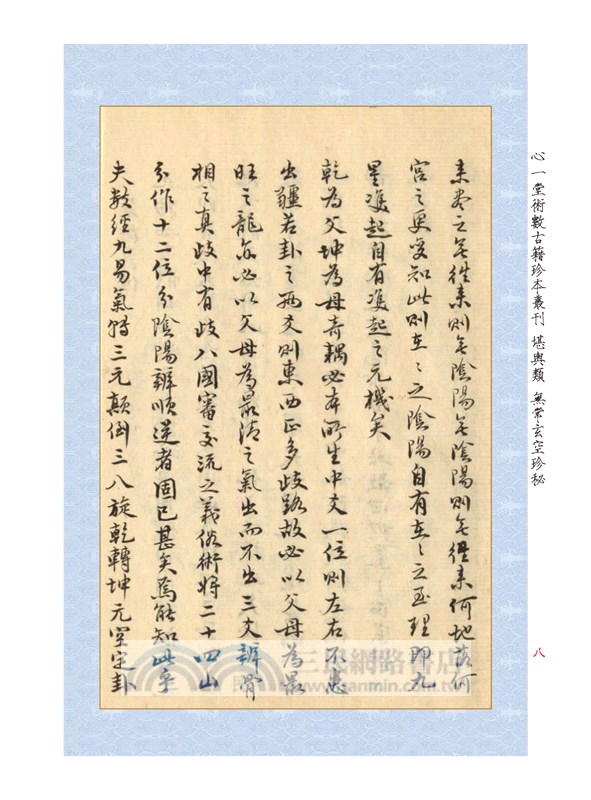 來者之無往來則無陰陽無陰陽則無往來何地為何
宮之災變知此則在之之陰陽自有在之之至理即九
星雙起自有雙起之元機矣
乾為父坤為母奇耦必在所生中爻一位則左右不患
出疆若卦之兩爻則東西正多歧路故必以父母為最
旺之龍亦必以父母為最清之氣出而不出三爻辨骨
相之真歧中有歧八國審交流之義俗術將二十四山
分作十二位分陰陽辨順逆者固已甚矣焉能知此乎
夫數經九易氣歸三元顛倒三八旋乾轉坤元空定卦
心一堂術數古籍珍本叢刊 堪輿類 無常玄空珍秘
八
三民網路書店
www.sanmin.com.tw